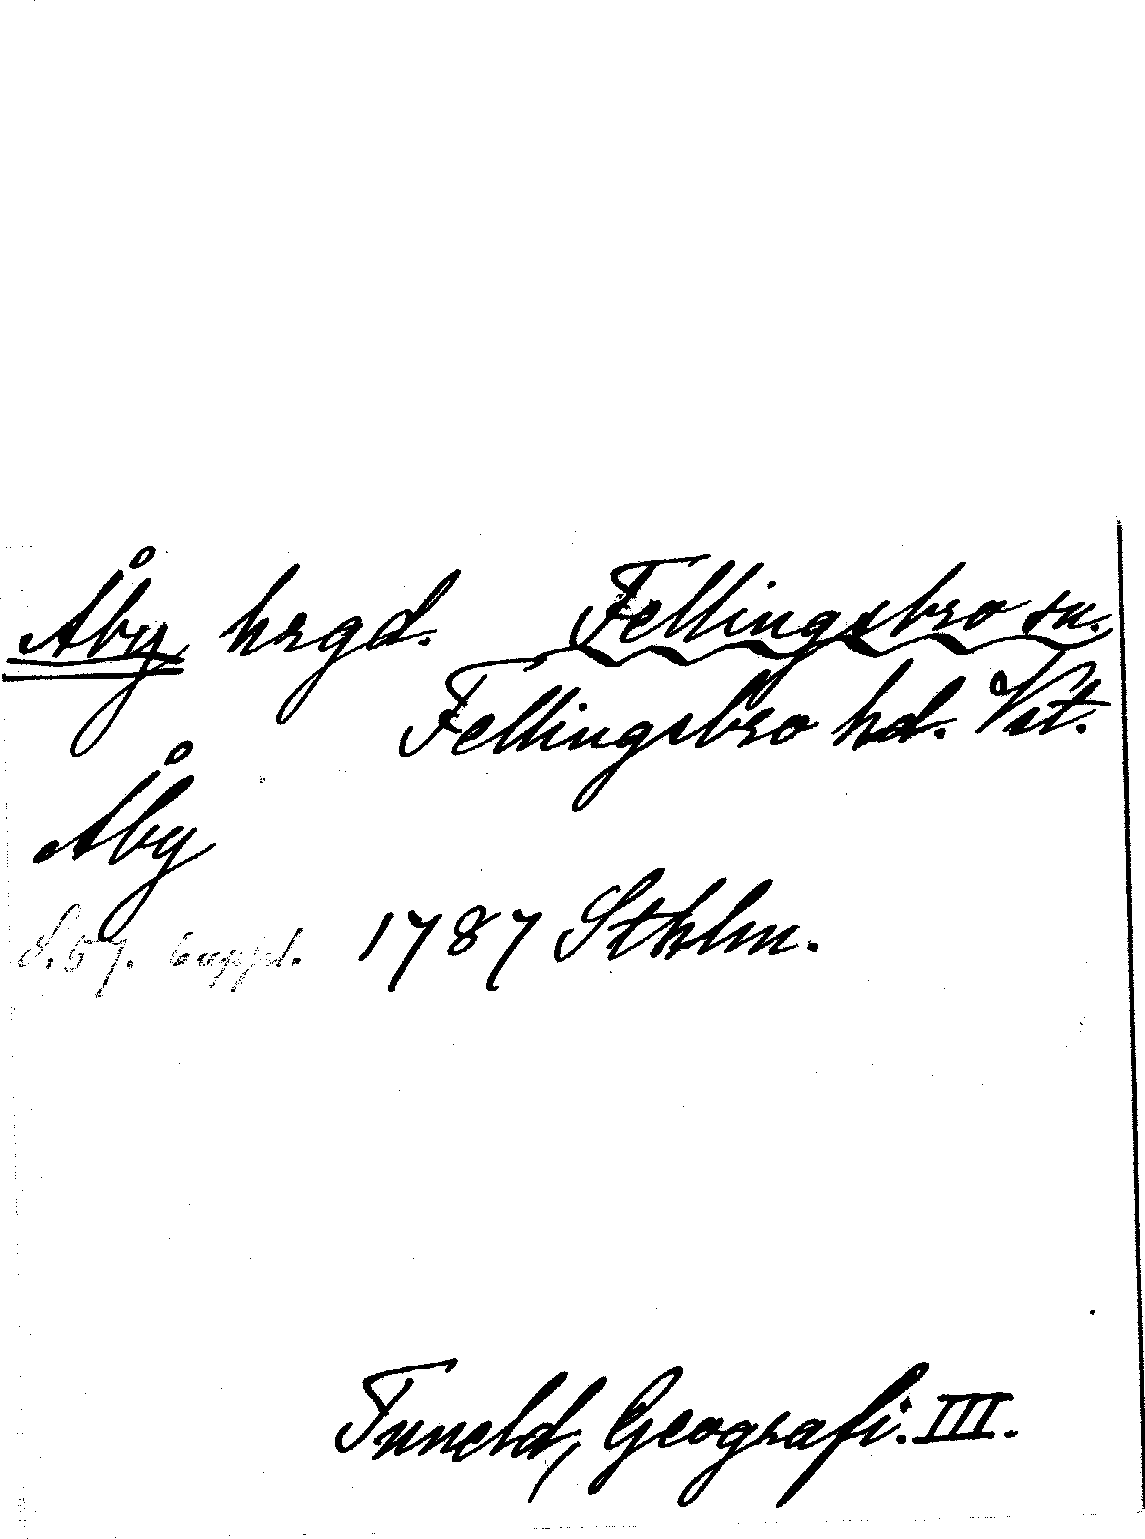 Åby hrgd. Fellingsbro sn.
Fellingsbro hd. Vst.
Åby
s. 57. 6 uppl. 1787 Sthlm.
Tuneld, Geografi. III.